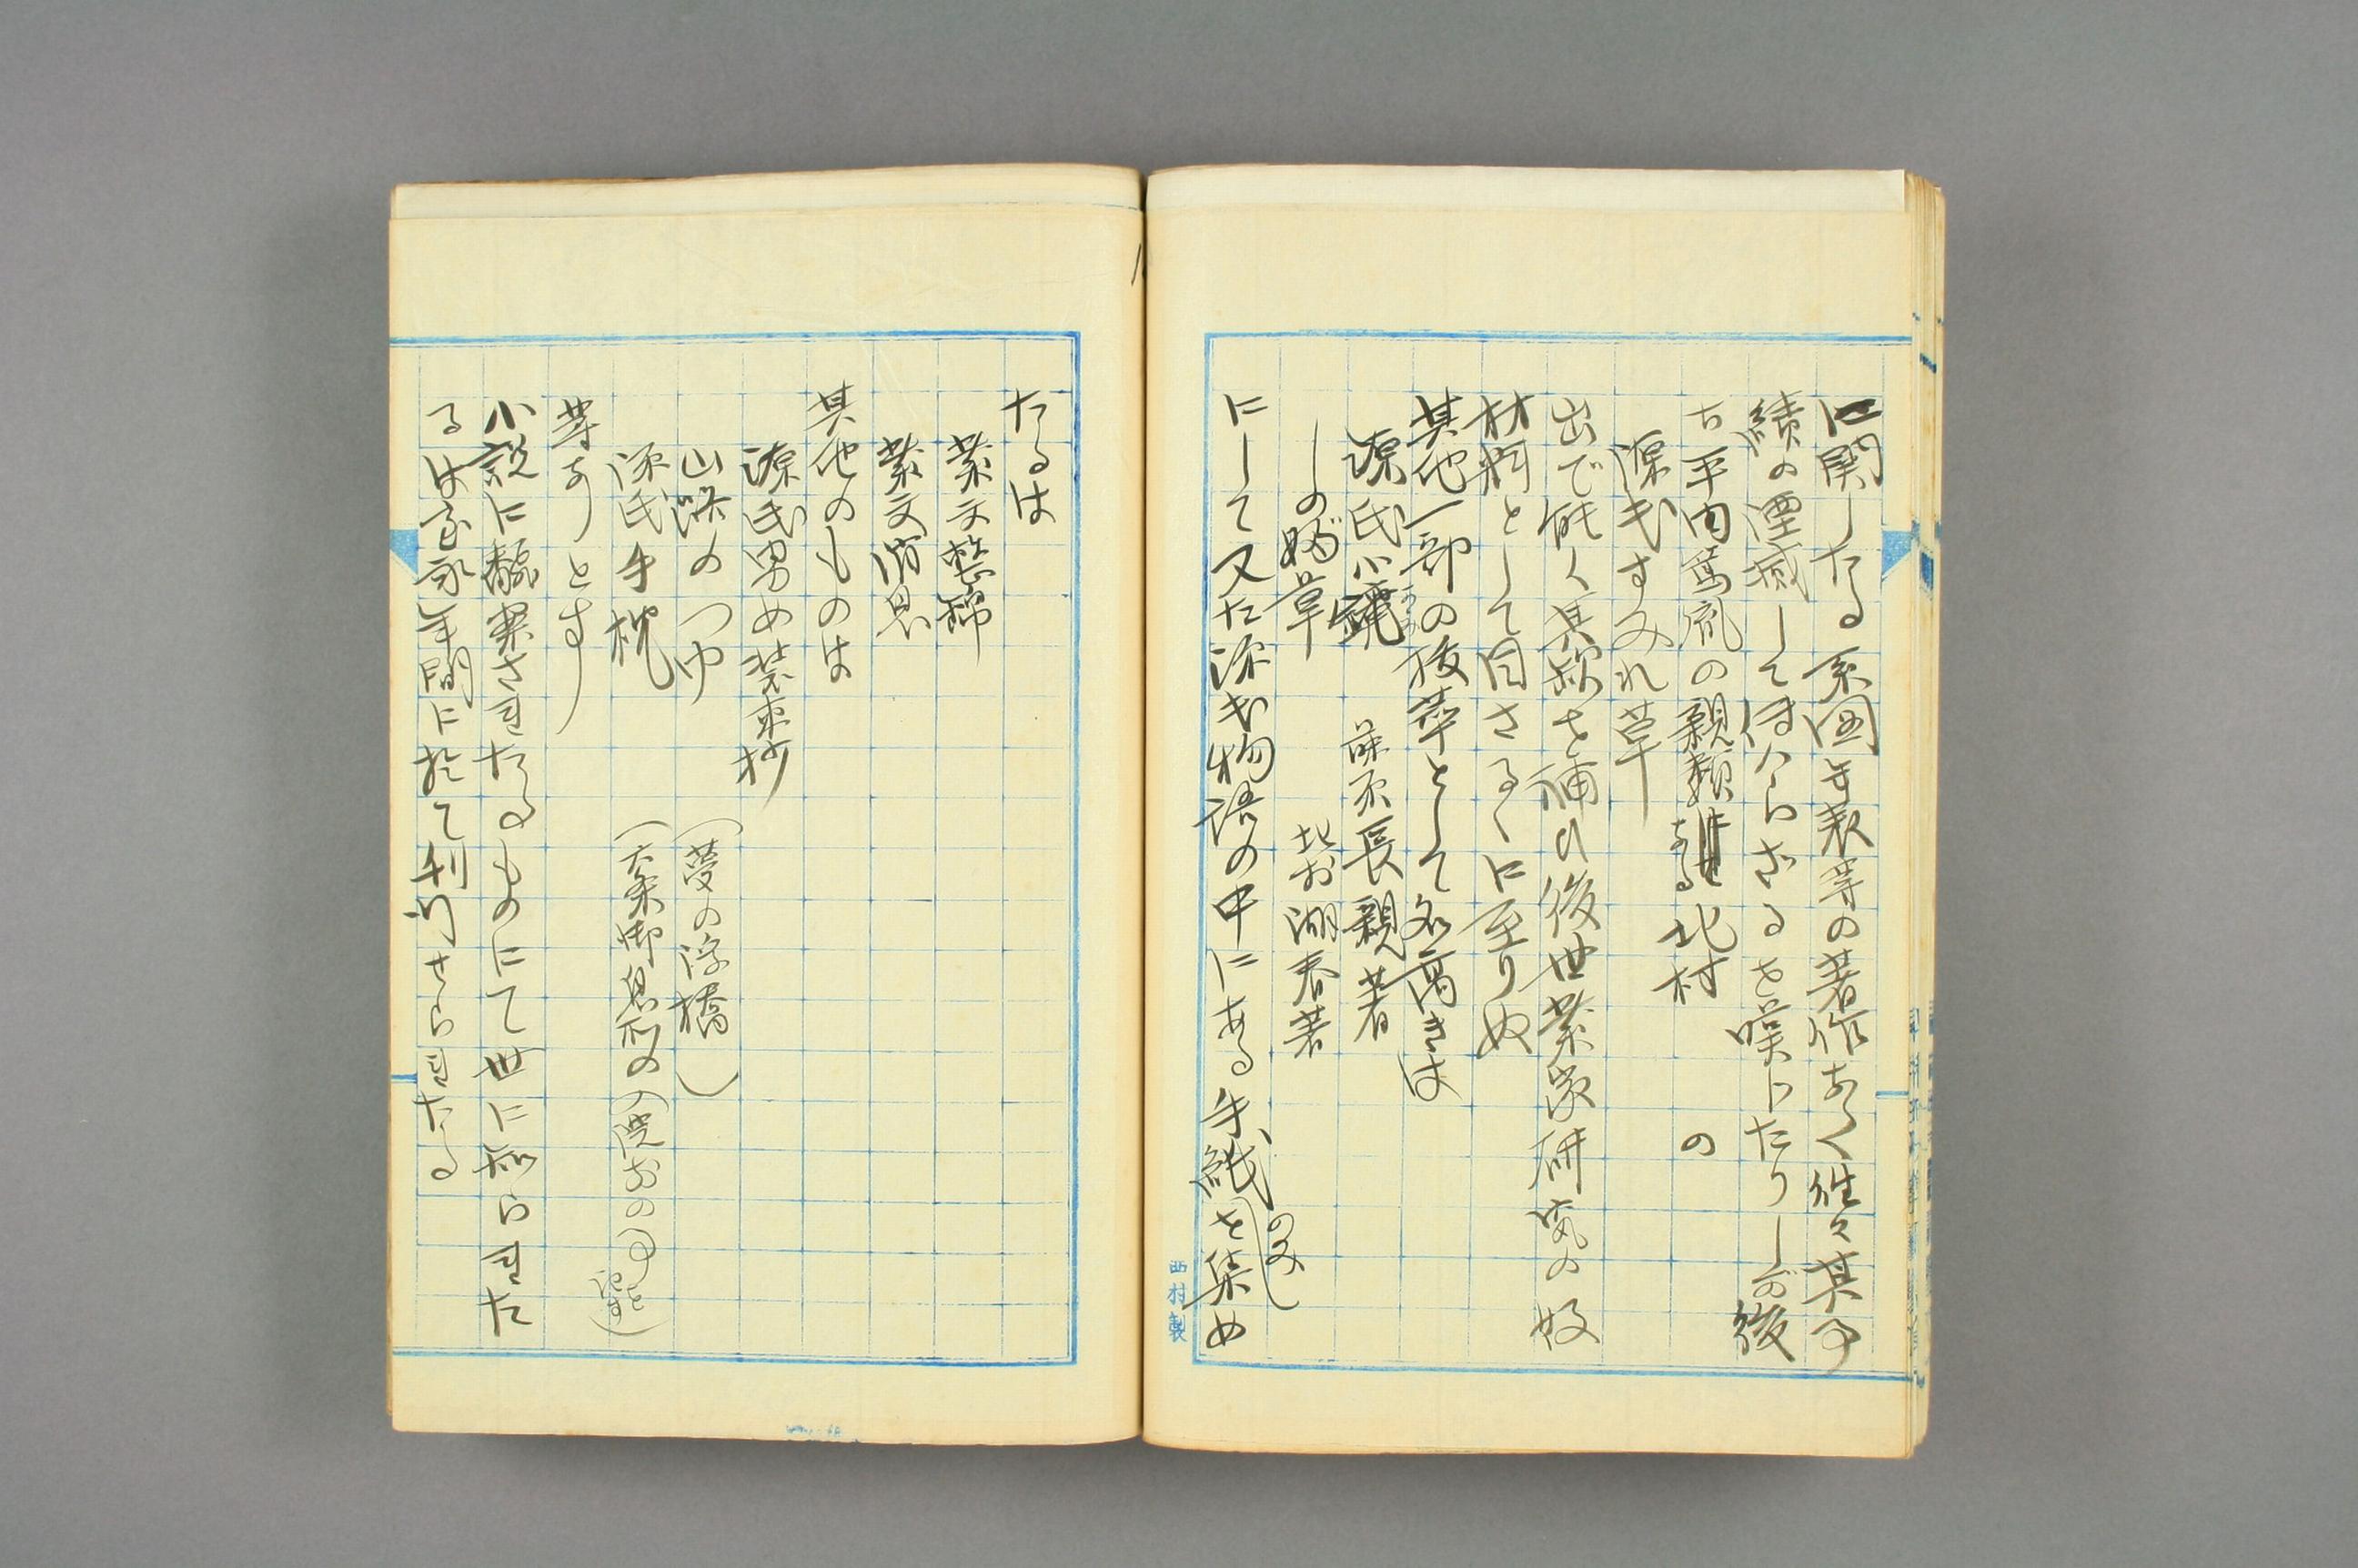 に関したる系図年表等の著作あく往々其事
績の湮滅して伝へらざるを嘆じたりしが後
古平内篤胤の親類なる北村　の
源氏すみれ草
出で能く其欲を補ひ後世紫家研究の好
材料として目さるゝに至りぬ
其他一部の抜萃として名高きは
源氏小鏡　藤原長親著
しの婦草　北村湖春著
にして又た源氏物語の中にある手紙（のみ）を集め
たるは
紫文
紫文消息
其他のものは
源氏男女装束抄
山路のつゆ　（夢の浮橋）
源氏手枕　（六条御息所の
等ありとす
小説に翻案されたるものにて世に知られた
るは安永年間に於て刊行せられたる
西村製